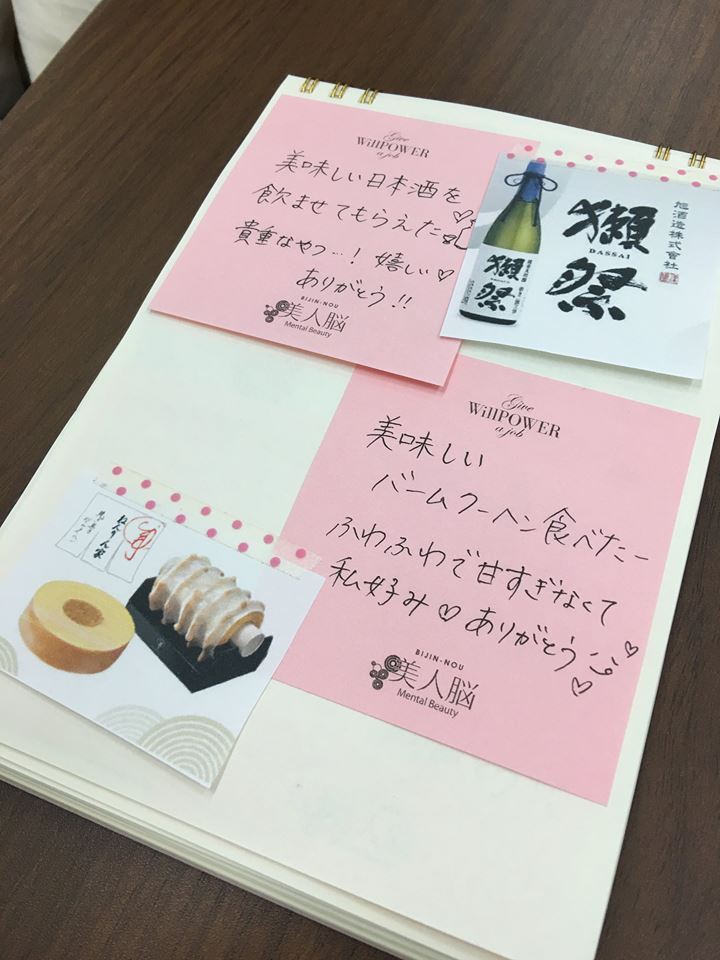 Give
WillPOWER
a job
美味しい日本酒を
飲ませてもらえた
貴重なやつ…! 嬉しい♡
ありがとう!!
BIJIN-NOU
美人脳
Mental Beauty
獺祭
DASSAI
旭酒造株式會社
獺祭
Give
WillPOWER
a job
美味しい
バームクーヘン食べたー
ふわふわで甘すぎなくて
私好み♡ありがとう
BIJIN-NOU
美人脳
Mental Beauty
ねんりん家